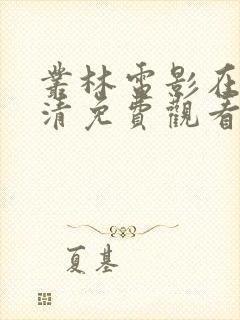 叢林電影在
清免費觀看
夏基